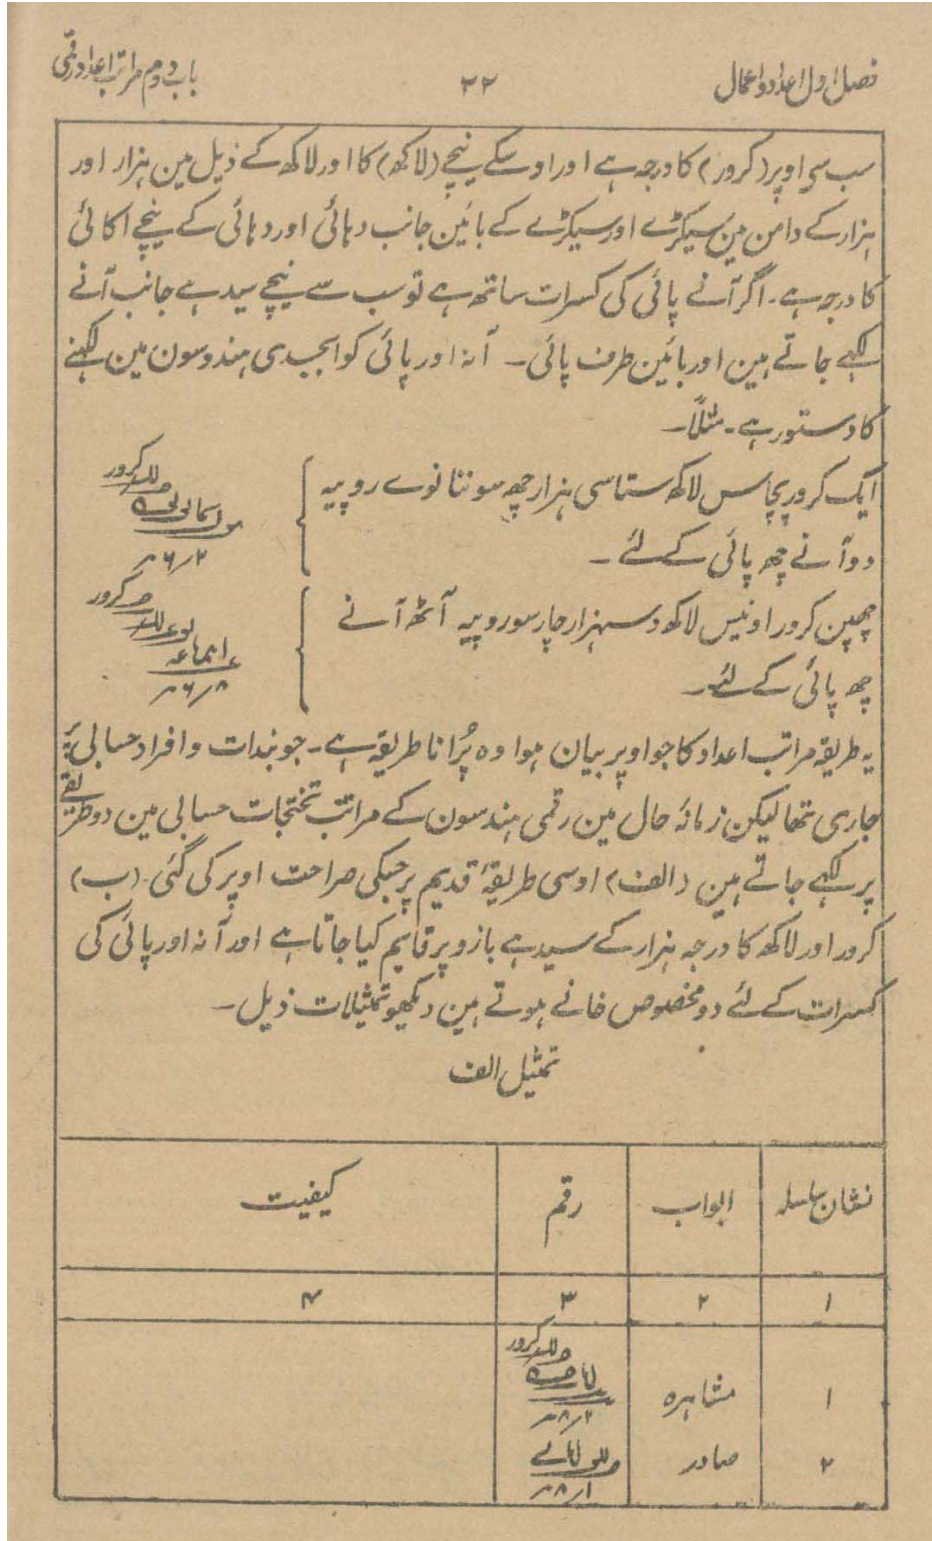 فصل اول اعداد و اعمال
۲۲
باب دوم مراتب اعداد رقمی
سب سی اوپر (کرور) کا درجہ ہے اور اوسکے نیچے (لاکھ) کا اور لاکھ کے ذیل مین ہزار اور
ہزار کے دامن مین سیکڑے اور سیکڑے کے بائین جانب دہائی اور دہائی کے نیچے اکائی
کا درجہ ہے۔ اگر آنے پائی کی کسرات ساتھ ہے تو سب سے نیچے سیدہے جانب آنے
لکہے جاتے ہین اور بائین طرف پائی۔ آنہ اور پائی کو ابجدی ہندوسون مین لکہنے
کا دستور ہے۔ مثلاً۔
ایک کرور پچاس لاکھ ستاسی ہزار چھ سو ننانوے روپیہ
دو آنے چھ پائی کے لئے۔
کرور
۲/۶
چھپن کرور اونیس لاکھ دسہزار چار سو روپیہ آٹھ آنے
چھ پائی کے لئے۔
کرور
۸/۶
یہ طریقہ مراتب اعداد کا جو اوپر بیان ہوا وہ پُرانا طریقہ ہے۔ جو بندات و افراد حسابی پر
جاری تھا لیکن زمانۂ حال مین رقمی ہندسون کے مراتب تختجات حسابی مین دو طریقے
پر لکہے جاتے ہین (الف) اوسی طریقۂ قدیم پر جسکی صراحت اوپر کی گئی۔ (ب)
کرور اور لاکھ کا درجہ ہزار کے سیدہے بازو پر قایم کیا جاتا ہے اور آنہ اور پائی کی
کسرات کے لئے دو مخصوص خانے ہوتے ہین دیکھو تمثیلات ذیل۔
تمثیل الف
نشان سلسلہ ابواب رقم کیفیت
۱ ۲ ۳ ۴
۱ مشاہرہ کرور
۲/۸
۲ صادر
۱/۸